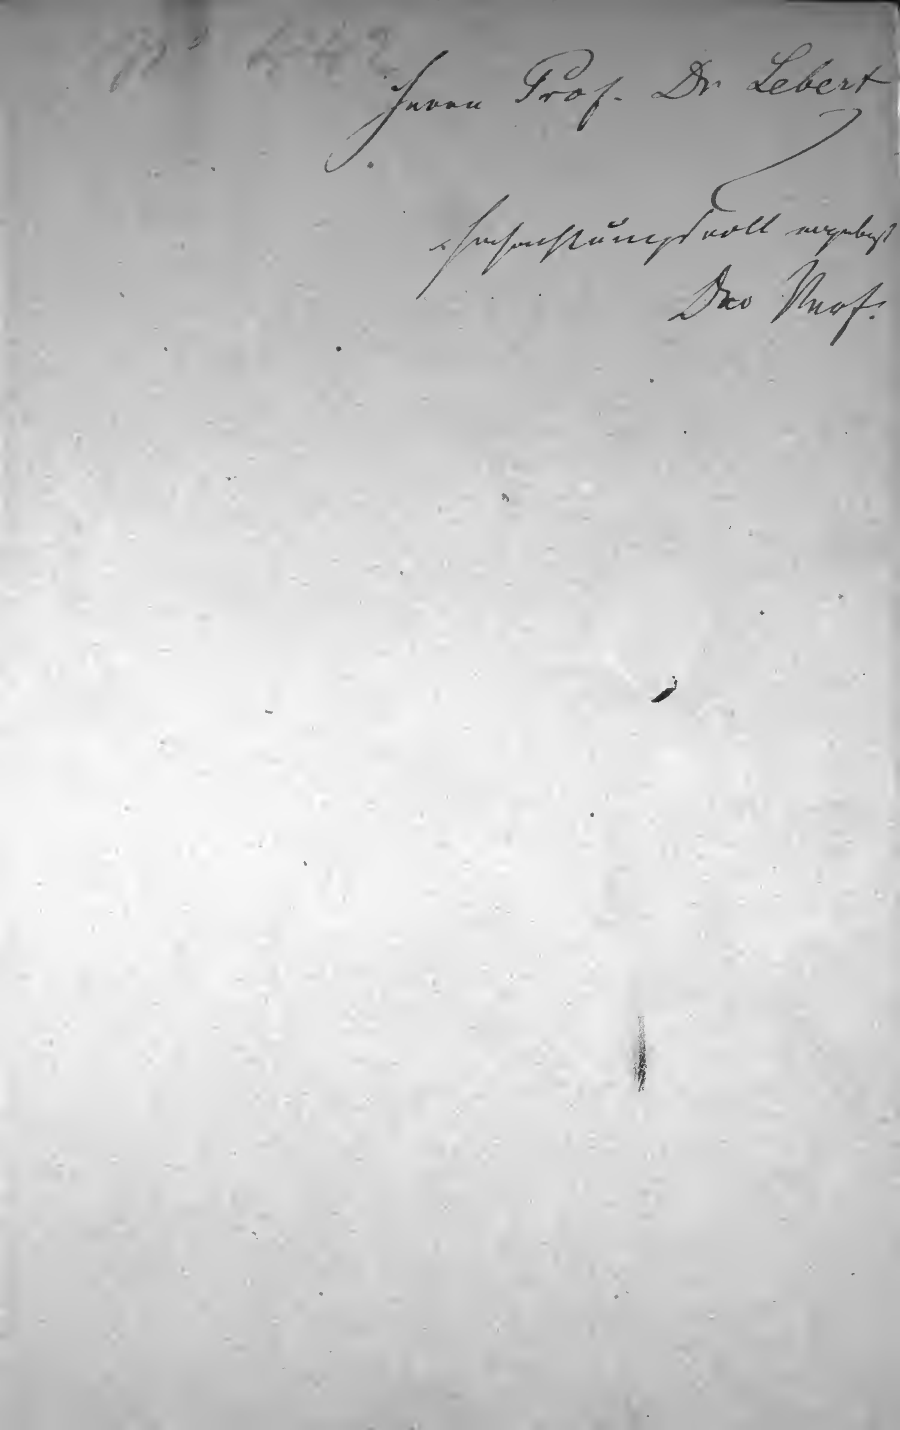 Nº 442
Herrn Prof. Dr Lebert
hochachtungsvoll ergebenst
Der Verf.